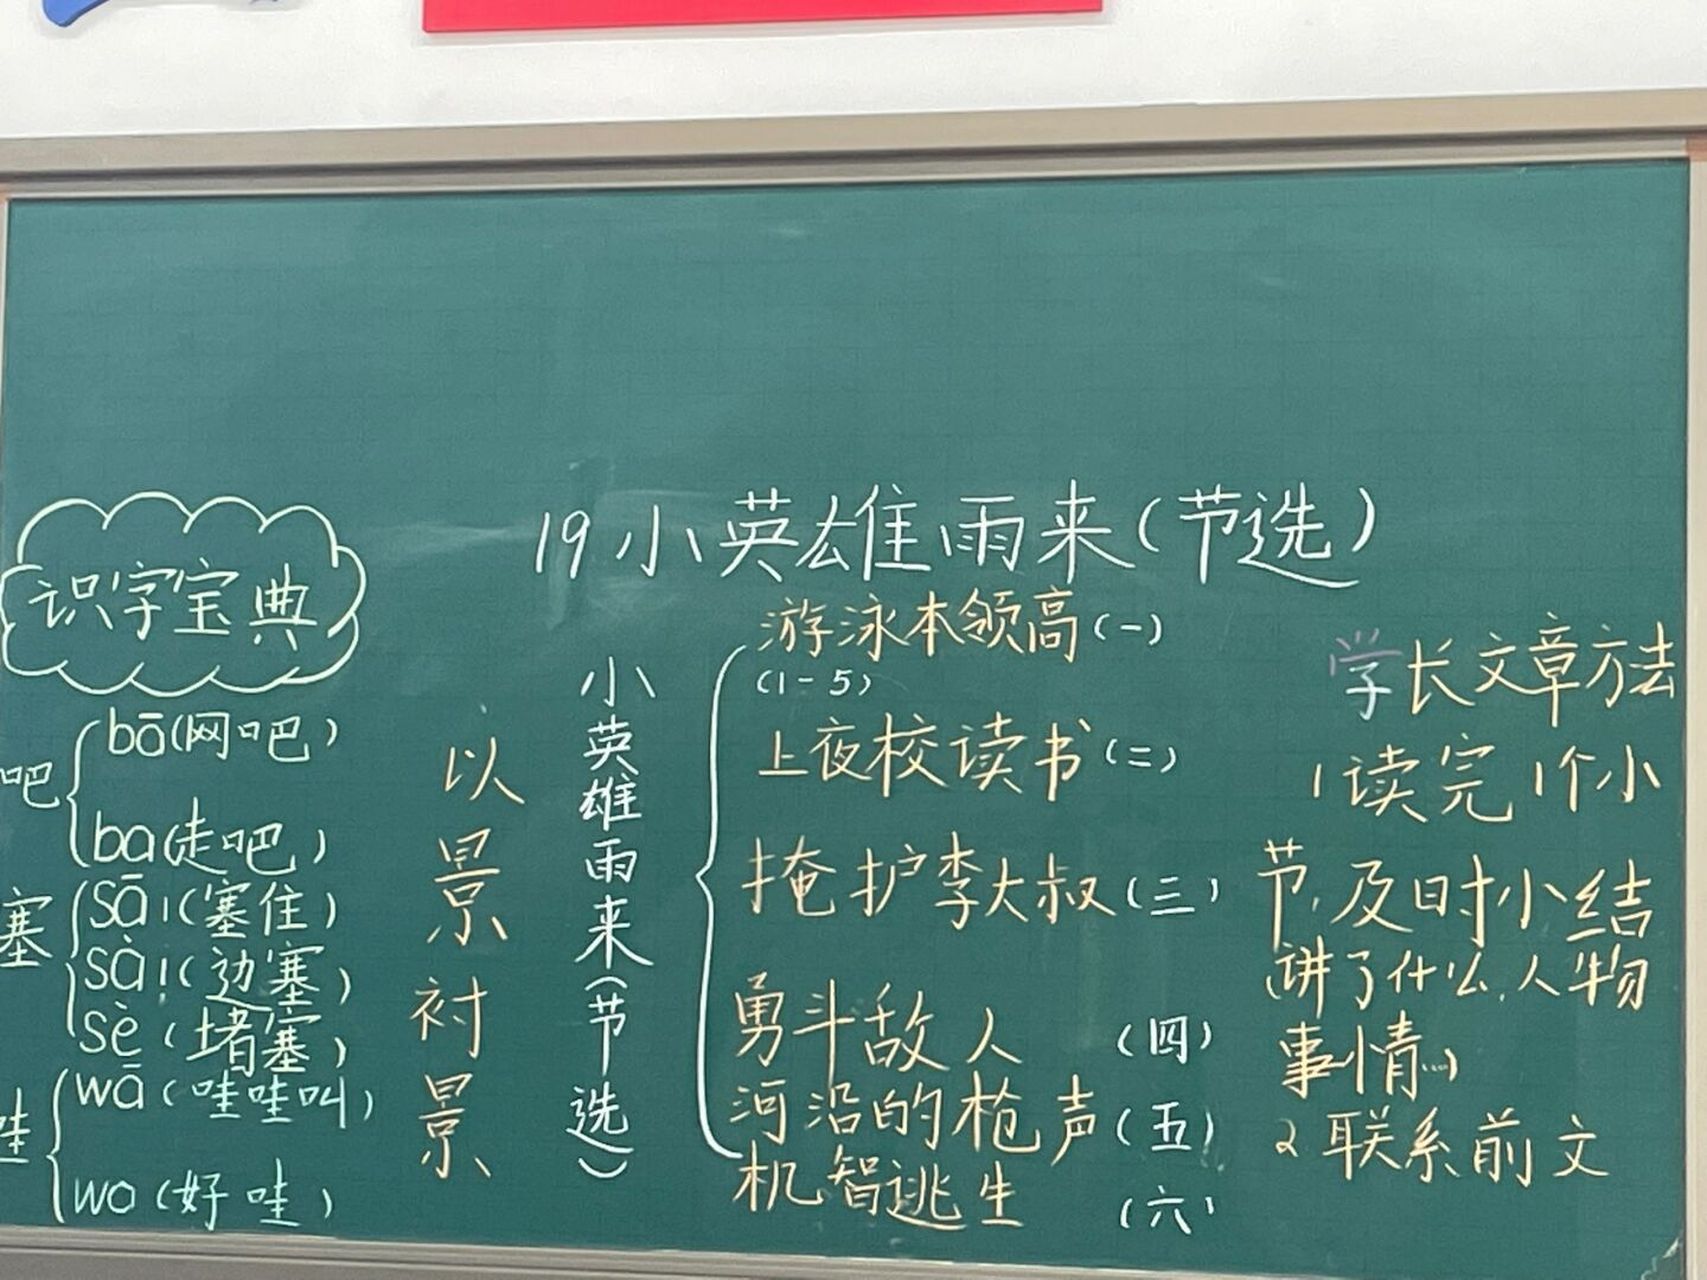 19 小英雄雨来（节选）
识字宝典
吧
bō（网吧）
ba（走吧）
塞
sāi（塞住）
sài（边塞）
sè（堵塞）
哇
wā（哇哇叫）
wa（好哇）
以景衬景
小英雄雨来（节选）
游泳本领高（一）
（1-5）
上夜校读书（二）
掩护李大叔（三）
勇斗敌人（四）
河沿的枪声（五）
机智逃生（六）
学长文章方法
1 读完1个小
节，及时小结
（讲了什么，人物
事情…）
2 联系前文